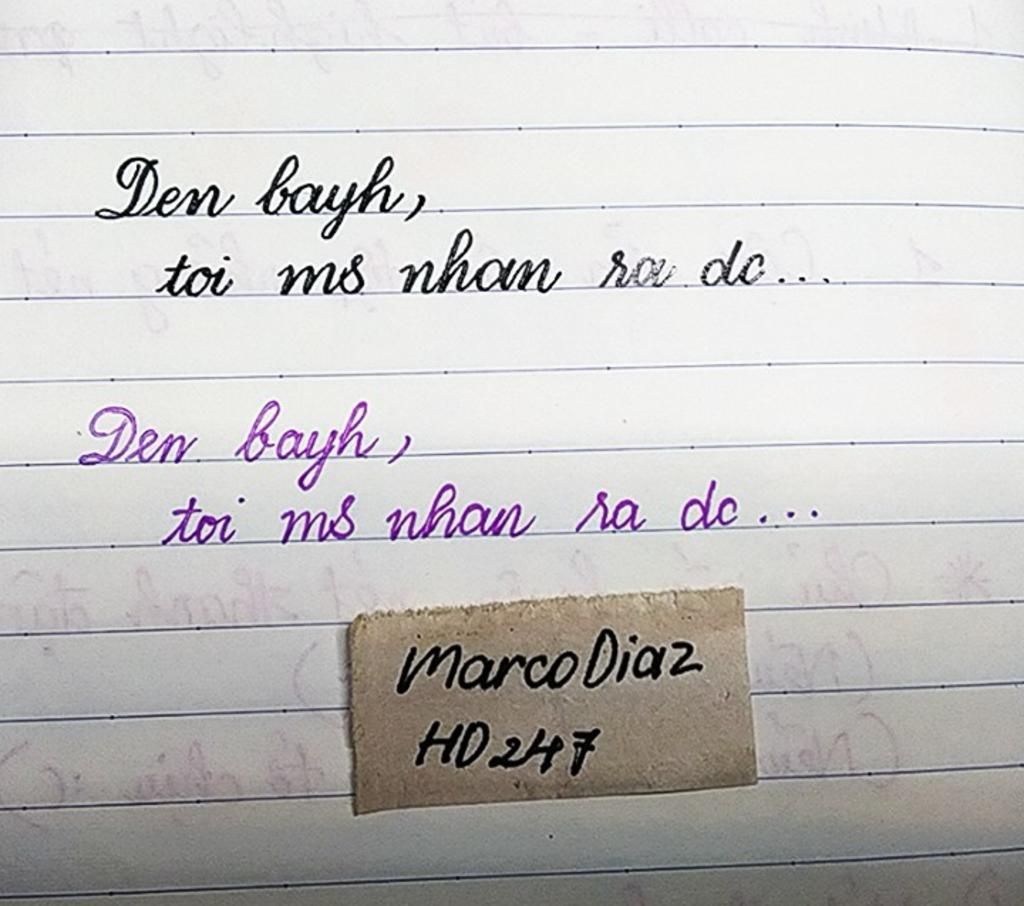 Den bayh,
toi ms nhan ra dc...
Den bayh,
toi ms nhan ra dc...
Marco Diaz
HD247